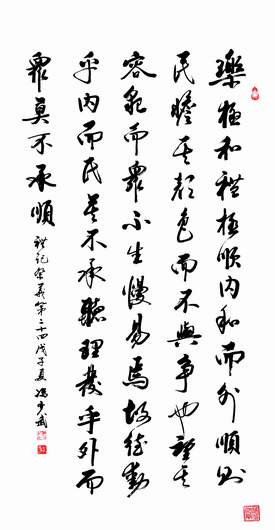 樂極和禮極順內和而外順則
民瞻其顏色而不與爭也望其
容貌而眾不生慢易焉故德動
乎內而民莫不承聽理發乎外而
眾莫不承順
禮記祭義第二十四戊子夏